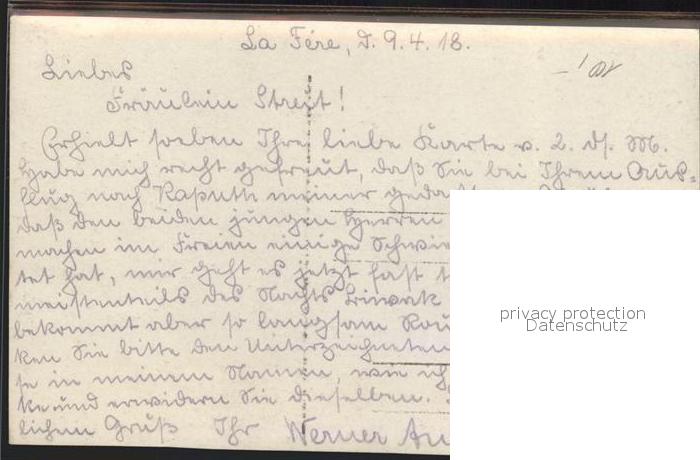 La Fére, d. 9.4.18.
Liebes
Fräulein Streit!
Erhielt soeben Ihre liebe Karte v. 2. ds. M.
habe mich recht gefreut, daß Sie bei Ihrem Aus-
flug nach Kaputh meiner
daß den beiden jungen Herren
machen im Freien einige
tet hat, mir geht es jetzt fast
meistenteils des Nachts
bekommt aber so langsam
ken Sie bitte den Unterzeichneten
in meinem Namen, wie ich
ke und erwidern Sie dieselben.
lichen Gruß Ihr Werner
privacy protection
Datenschutz